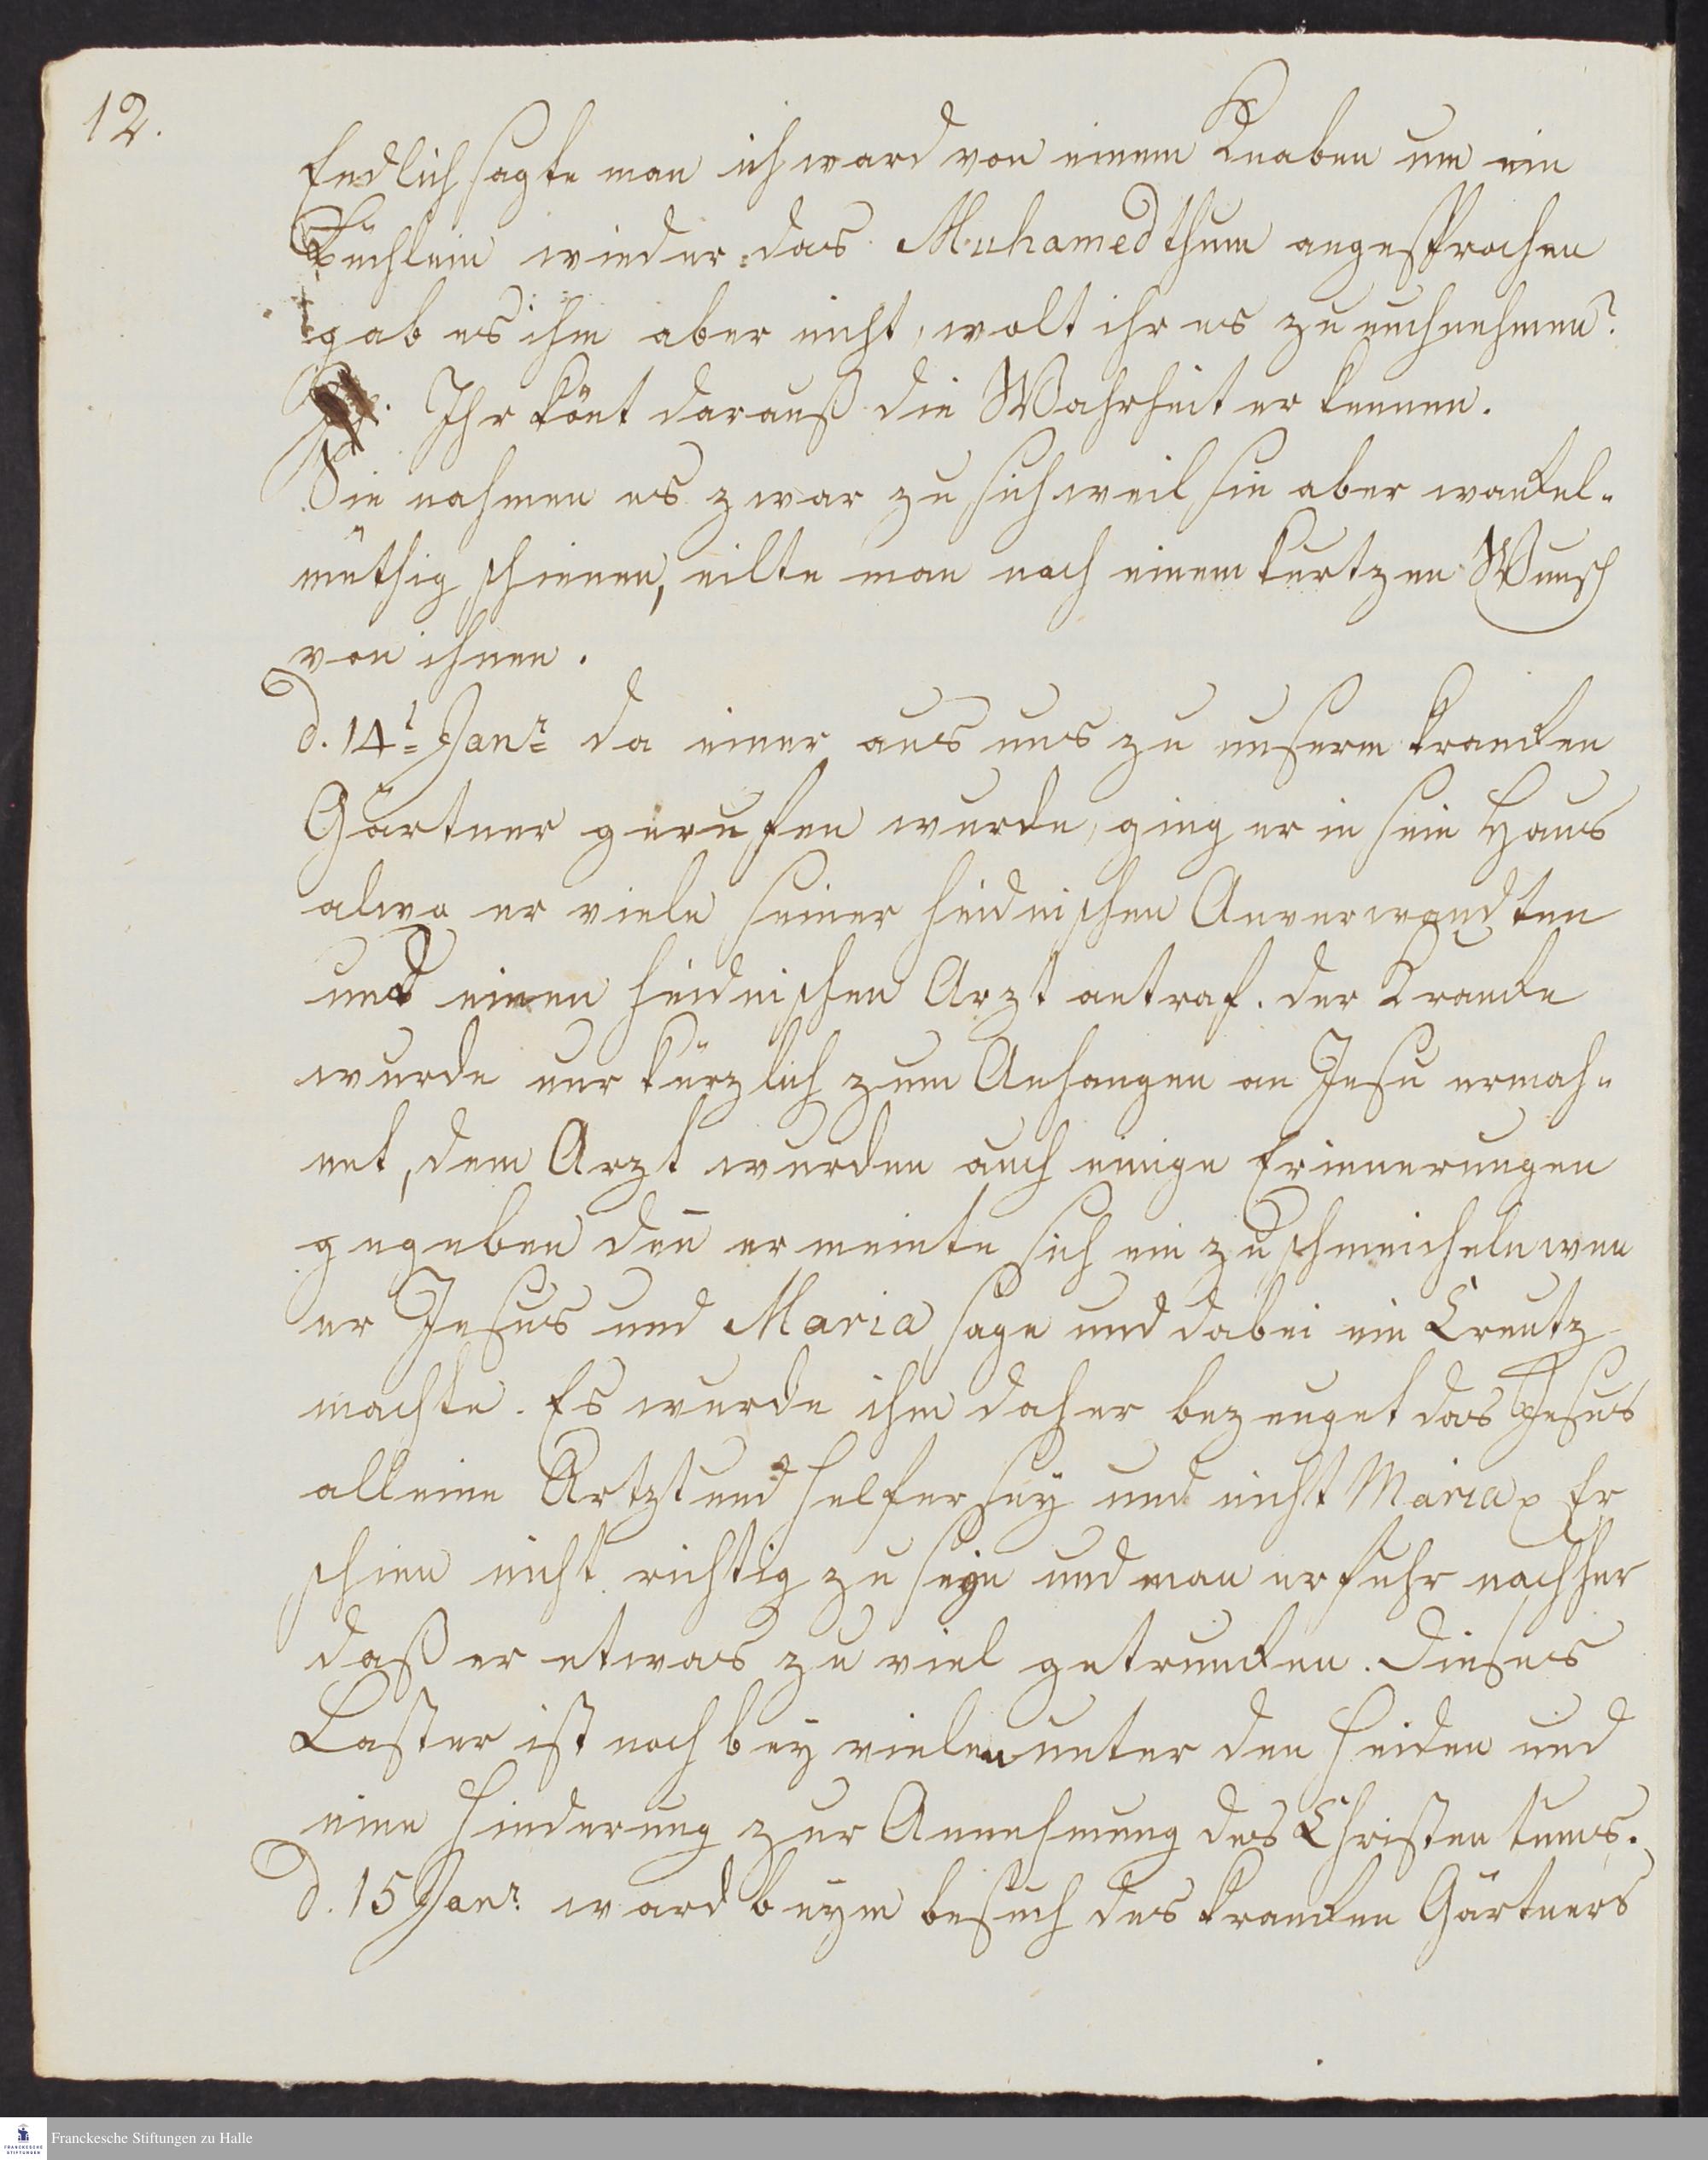 12.
Endlich sagte man ich ward von einem Knaben um ein
Büchlein wieder das Muhamedthum angesprochen
gab es ihm aber nicht, wolt ihr es zu euch nehmen?
Ihr könt darauß die Wahrheit erkennen.
Sie nahmen es zwar zu sich weil sie aber wankel-
müthig schienen, eilte man nach einem kurtzen Wunsch
von ihnen.
d. 14t Janr da einer aus uns zu unserm krancken
Gärtner gerufen wurde, ging er in sein Haus
alwo er viele seiner heidnischen Anverwandten
und einen heidnischen Arzt antraf. der Krancke
wurde nur kürzlich zum Anhangen an Jesu ermah-
net, dem Arzt wurden auch einige Erinnerungen
gegeben den̄ er meinte sich ein zu schmeicheln wen
er Jesus und Maria sage und dabei ein Creutz
machte. Es wurde ihm daher bezeuget das Jesus
alleine Artzt und Helfer seÿ und nicht Maria Er
schien nicht richtig zu seyn und man erfuhr nachher
daß er etwas zu viel getruncken. Dieses
Laster ist noch beÿ vielen unter den Heiden und
eine Hinderung zur Annehmung des Christentums.
d. 15 Janr. ward beym besuch des krancken Gärtners
Franckesche Stiftungen zu Halle
FRANCKESCHE
STIFTUNGEN